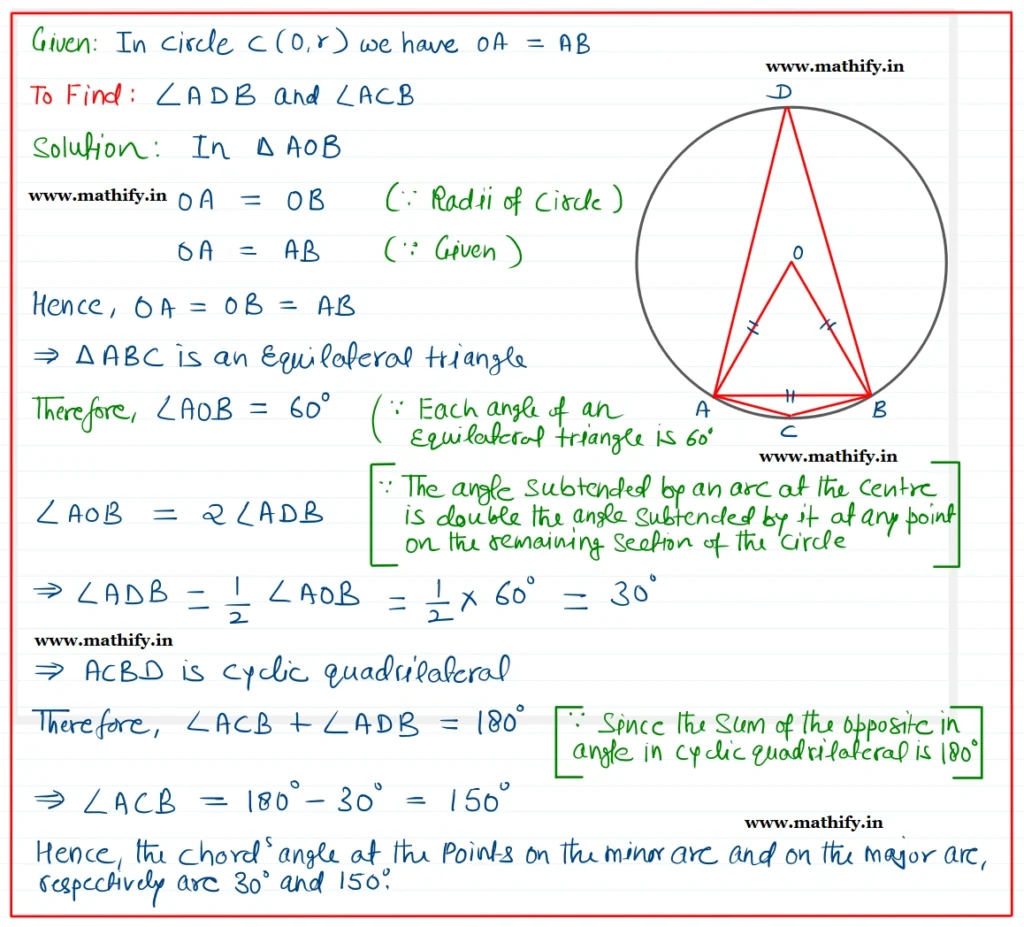 Given: In circle C(O,r) we have OA = AB
www.mathify.in
To Find: ∠ADB and ∠ACB
D
Solution: In Δ AOB
www.mathify.in OA = OB (∵ Radii of Circle)
OA = AB (∵ Given)
O
Hence, OA = OB = AB
⇒ ΔABC is an Equilateral triangle
Therefore, ∠AOB = 60° (∵ Each angle of an
Equilateral triangle is 60°
A
B
C
www.mathify.in
∠AOB = 2∠ADB [∵ The angle subtended by an arc at the centre
is double the angle subtended by it at any point
on the remaining section of the circle]
⇒ ∠ADB = 1/2 ∠AOB = 1/2 × 60° = 30°
www.mathify.in
⇒ ACBD is cyclic quadrilateral
Therefore, ∠ACB + ∠ADB = 180° [∵ Since the sum of the opposite in
angle in cyclic quadrilateral is 180°]
⇒ ∠ACB = 180° - 30° = 150°
www.mathify.in
Hence, the chord's angle at the Points on the minor arc and on the major arc,
respectively are 30° and 150°.